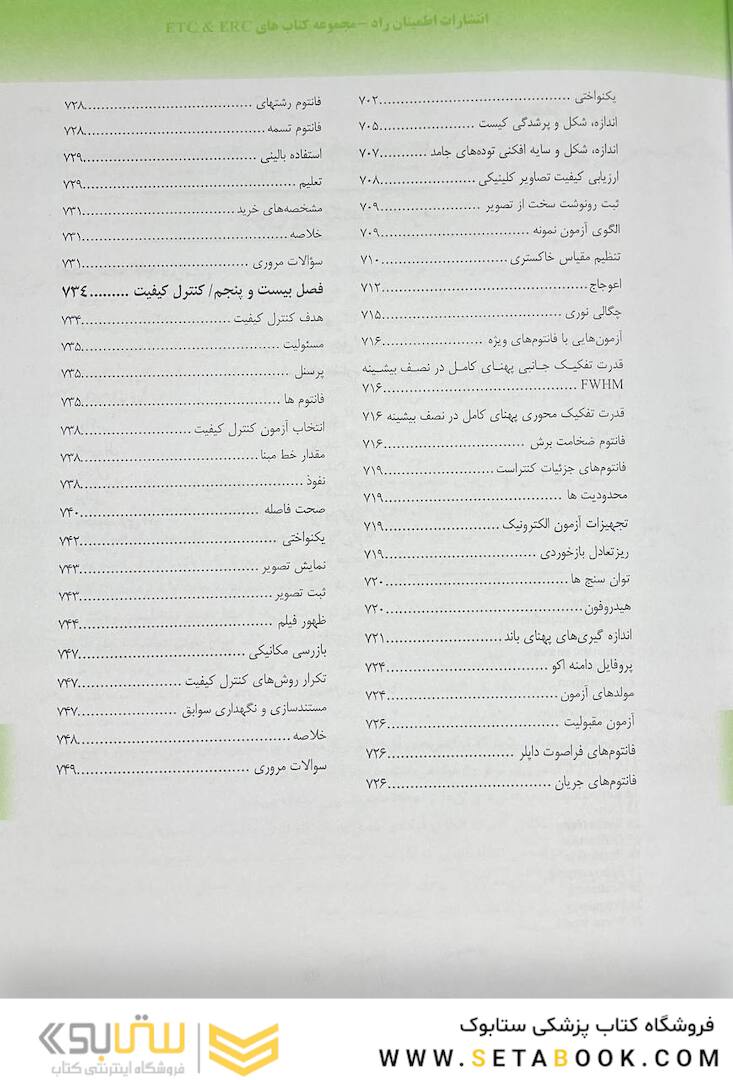 انتشارات اطمینان راد – مجموعه کتاب های ETC & ERC
یکنواختی ........ ۷۰۲
اندازه، شکل و پرشدگی کیست ........ ۷۰۵
اندازه، شکل و سایه افکنی توده‌های جامد ........ ۷۰۷
ارزیابی کیفیت تصاویر کلینیکی ........ ۷۰۸
ثبت رونوشت سخت از تصویر ........ ۷۰۹
الگوی آزمون نمونه ........ ۷۰۹
تنظیم مقیاس خاکستری ........ ۷۱۰
اعوجاج ........ ۷۱۲
چگالی نوری ........ ۷۱۵
آزمون‌هایی با فانتوم‌های ویژه ........ ۷۱۶
قدرت تفکیک جانبی پهنای کامل در نصف بیشینه
FWHM ........ ۷۱۶
قدرت تفکیک محوری پهنای کامل در نصف بیشینه ۷۱۶
فانتوم ضخامت برش ........ ۷۱۶
فانتوم‌های جزئیات کنتراست ........ ۷۱۹
محدودیت ها ........ ۷۱۹
تجهیزات آزمون الکترونیک ........ ۷۱۹
ریزتعادل بازخوردی ........ ۷۱۹
توان سنج ها ........ ۷۲۰
هیدروفون ........ ۷۲۰
اندازه گیری‌های پهنای باند ........ ۷۲۱
پروفایل دامنه اکو ........ ۷۲۴
مولدهای آزمون ........ ۷۲۴
آزمون مقبولیت ........ ۷۲۶
فانتوم‌های فراصوت داپلر ........ ۷۲۶
فانتوم‌های جریان ........ ۷۲۶
فانتوم رشتهای ........ ۷۲۸
فانتوم تسمه ........ ۷۲۸
استفاده بالینی ........ ۷۲۹
تعلیم ........ ۷۲۹
مشخصه‌های خرید ........ ۷۳۱
خلاصه ........ ۷۳۱
سؤالات مروری ........ ۷۳۱
فصل بیست و پنجم/ کنترل کیفیت ......... ۷۳۴
هدف کنترل کیفیت ........ ۷۳۴
مسئولیت ........ ۷۳۵
پرسنل ........ ۷۳۵
فانتوم ها ........ ۷۳۵
انتخاب آزمون کنترل کیفیت ........ ۷۳۸
مقدار خط مبنا ........ ۷۳۸
نفوذ ........ ۷۳۸
صحت فاصله ........ ۷۴۰
یکنواختی ........ ۷۴۲
نمایش تصویر ........ ۷۴۳
ثبت تصویر ........ ۷۴۳
ظهور فیلم ........ ۷۴۴
بازرسی مکانیکی ........ ۷۴۷
تکرار روش‌های کنترل کیفیت ........ ۷۴۷
مستندسازی و نگهداری سوابق ........ ۷۴۷
خلاصه ........ ۷۴۸
سوالات مروری ........ ۷۴۹
فروشگاه کتاب پزشکی ستابوک
WWW.SETABOOK.COM
ستابوک
فروشگاه اینترنتی کتاب